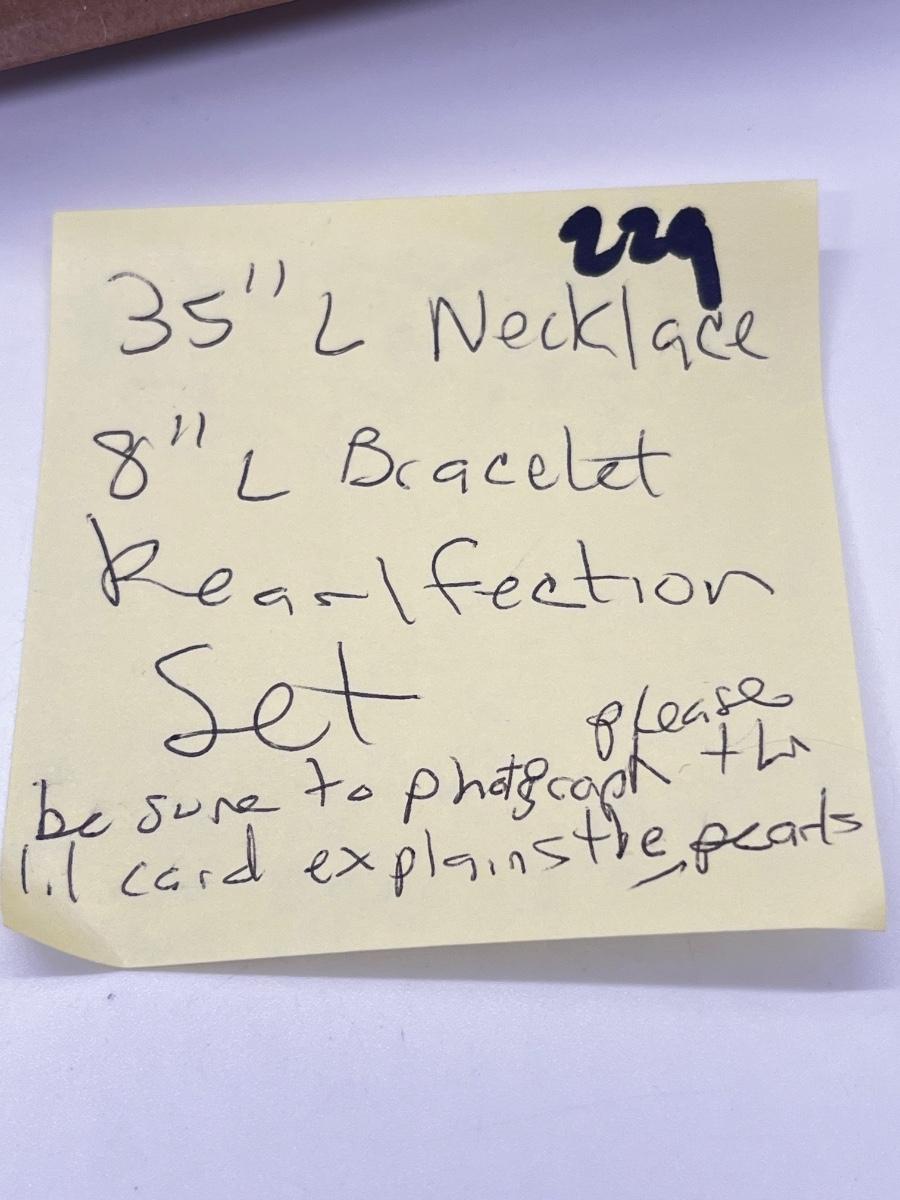 229
35" L Necklace
8" L Bracelet
Pearlfection
Set
please
be sure to photograph the
lil card explains the pearls